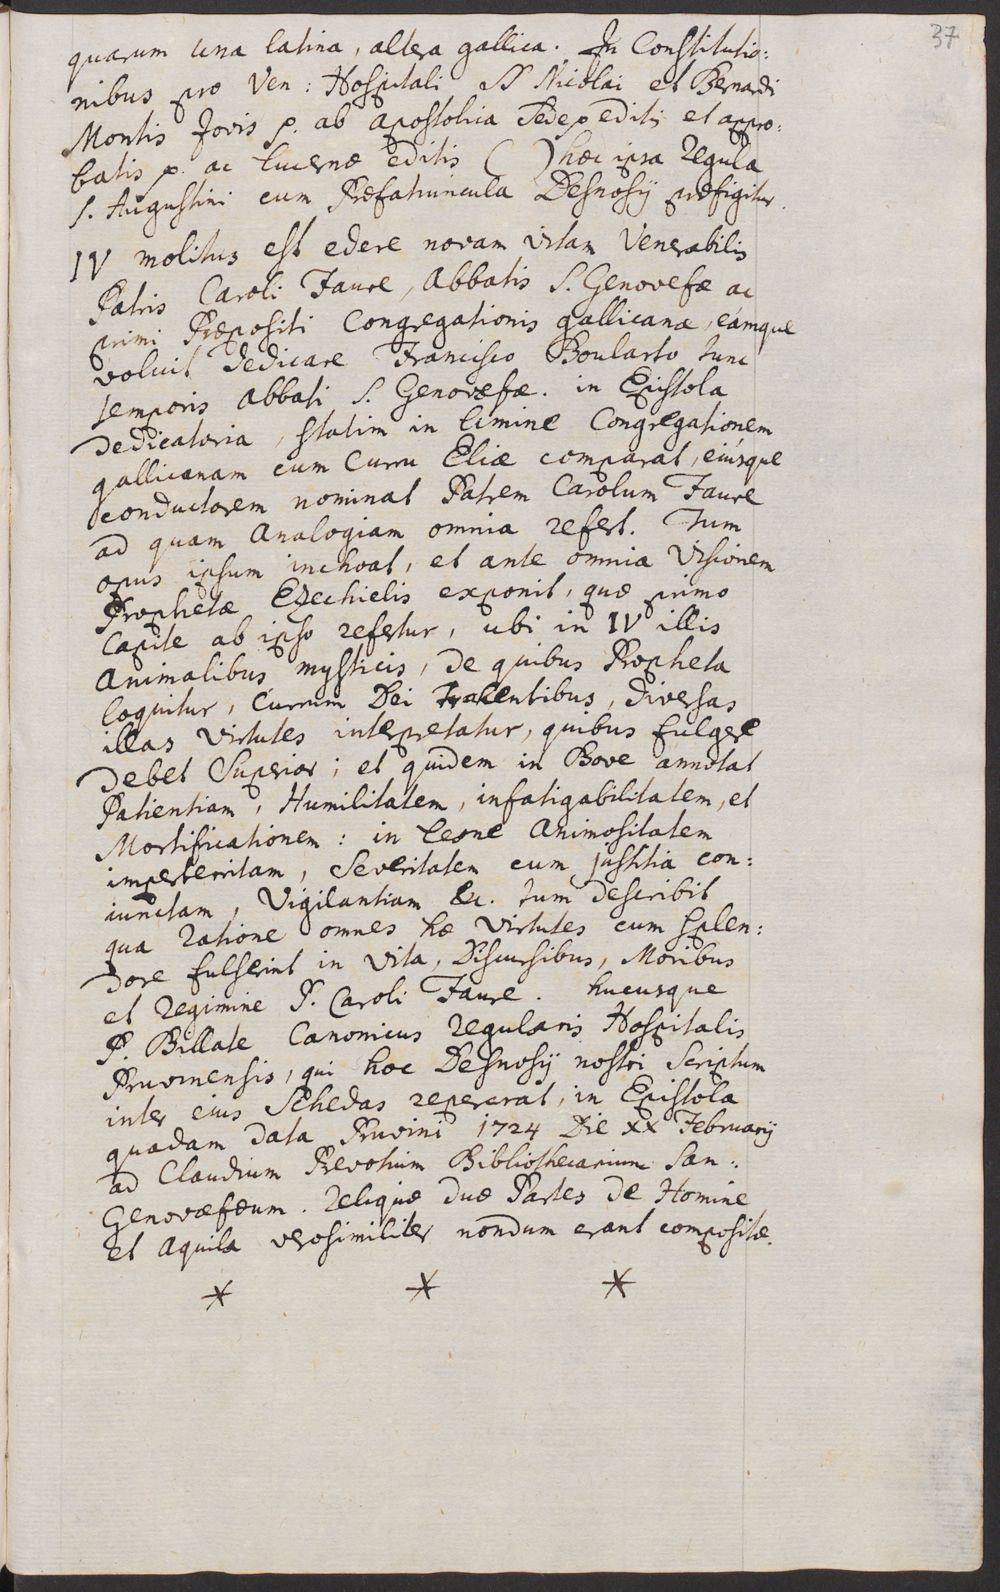 37
quarum una latina, altera gallica. In Constitutio:
nibus pro Ven: Hospitali SS Nicolai et Bernardi
Montis Jovis p. ab apostolica Sede editis et appro:
batis p. ac Lucernæ editis ( ) hæc ipsa Regula
S. Augustini cum Præfatiuncula Desnosij præfigitur.
IV molitus est edere novam vitam Venerabilis
Patris Caroli Faure, Abbatis S. Genovefæ ac
primi Præpositi Congregationis gallicanæ, eámque
voluit dedicare Francisco Boularto tunc
temporis abbati S. Genovæfæ. in Epistola
dedicatoria, statim in limine Congregationem
gallicanam cum Curru Eliæ comparat, eiúsque
conductorem nominat Patrem Carolum Faure
ad quam Analogiam omnia refert. Tum
opus ipsum inchoat, et ante omnia Visionem
Prophetæ Ezechielis exponit, quæ primo
Capite ab ipso refertur, ubi in IV illis
Animalibus mysticis, de quibus Propheta
loquitur, Currum Dei trahentibus, diversas
illas Virtutes interpretatur, quibus fulgere
debet Superior; et quidem in Bove annotat
Patientiam, Humilitatem, infatigabilitatem, et
Mortificationem: in Leone Animositatem
imperterritam, Severitatem cum justitia con:
iunctam, Vigilantiam &c. tum describit
qua Ratione omnes hæ Virtutes cum splen:
dore fulserint in Vita, Discursibus, Moribus
et Regimine P. Caroli Faure. hucusque
P. Billate Canonicus Regularis Hospitalis
Pruvinensis, qui hoc Desnosij nostri Scriptum
inter eius Schedas repererat, in Epistola
quadam data Pruvini 1724 Die XX Februarij
ad Claudium Prevotium Bibliothecarium San:
Genovæfæum. Reliquæ duæ Partes de Homine
et Aquila verosimiliter nondum erant compositæ.
* * *